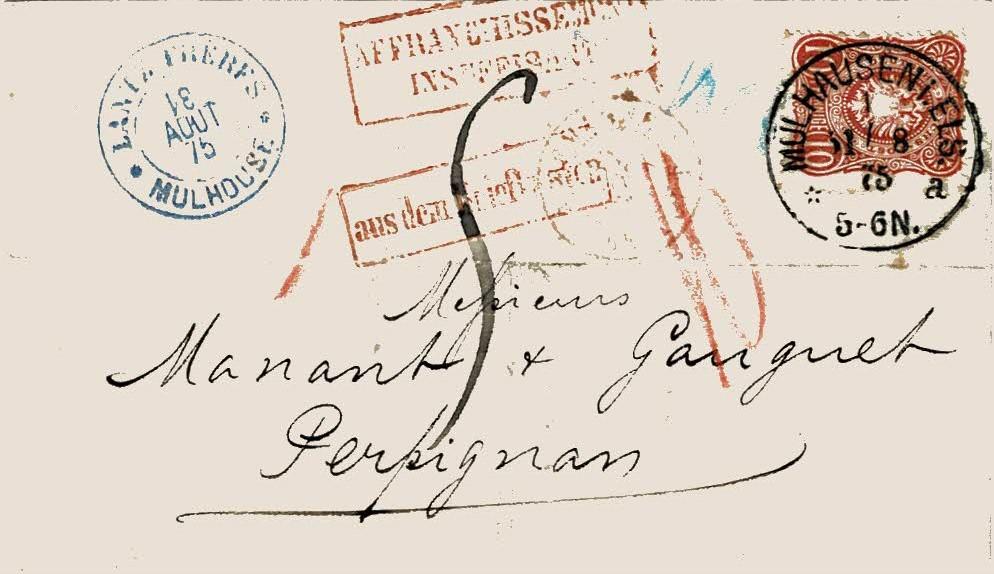 LANTZ FRERES
31
AOUT
75
MULHOUSE
AFFRANCHISSEMENT
INSUFFISANT
aus dem Briefkasten
MÜLHAUSEN I. ELS.
31 8
75 a
5-6N.
10
5
Messieurs
Manant & Gauguet
Perpignan